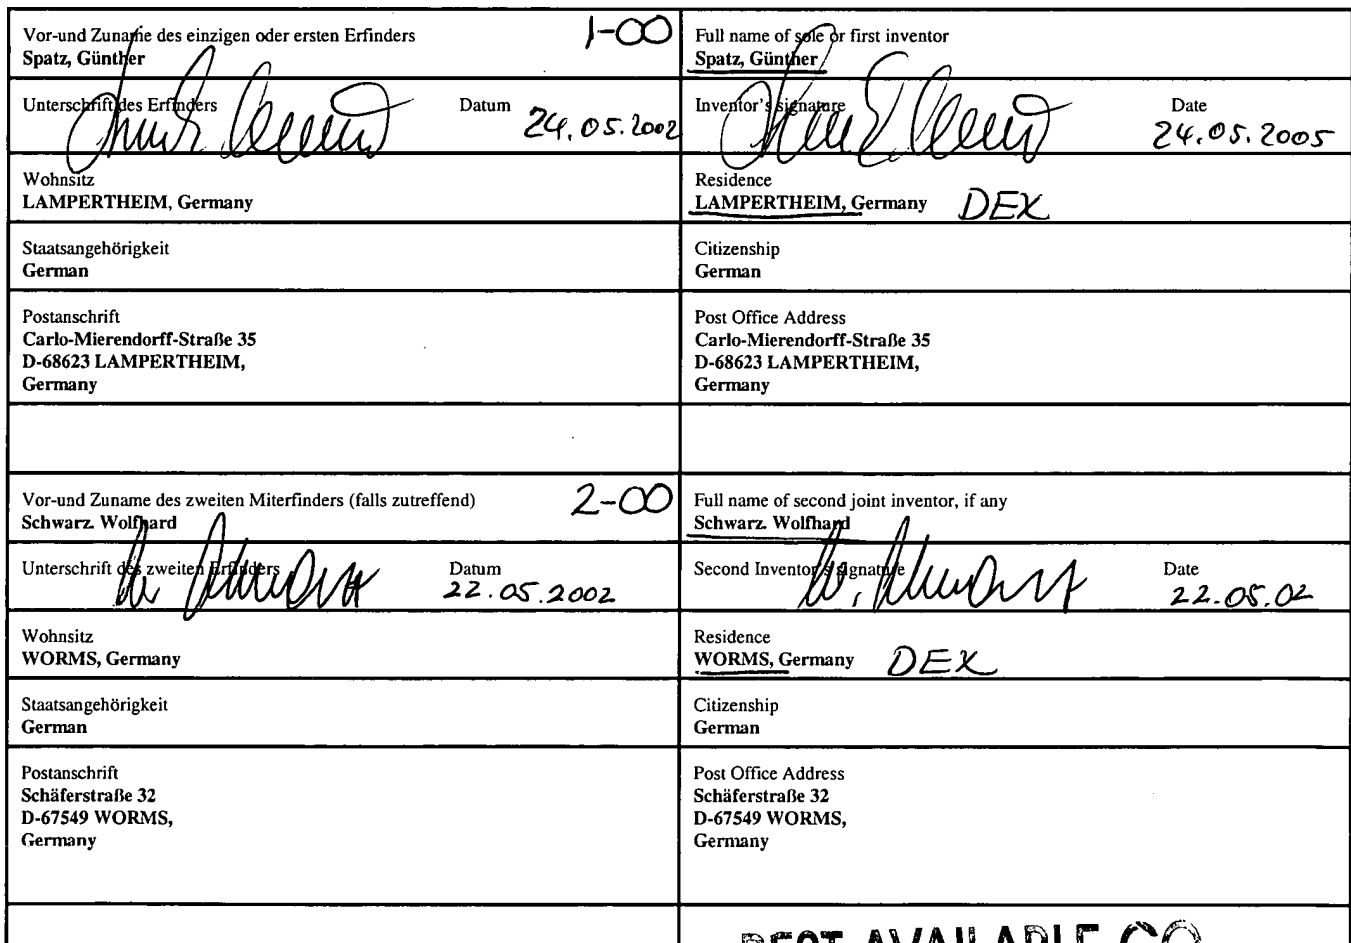 Vor-und Zuname des einzigen oder ersten Erfinders 1-00
Spatz, Günther
Full name of sole or first inventor
Spatz, Günther
Unterschrift des Erfinders Datum
24.05.2002
Inventor's signature Date
24.05.2005
Wohnsitz
LAMPERTHEIM, Germany
Residence
LAMPERTHEIM, Germany DEX
Staatsangehörigkeit
German
Citizenship
German
Postanschrift
Carlo-Mierendorff-Straße 35
D-68623 LAMPERTHEIM,
Germany
Post Office Address
Carlo-Mierendorff-Straße 35
D-68623 LAMPERTHEIM,
Germany
Vor-und Zuname des zweiten Miterfinders (falls zutreffend) 2-00
Schwarz. Wolfhard
Full name of second joint inventor, if any
Schwarz. Wolfhard
Unterschrift des zweiten Erfinders Datum
22.05.2002
Second Inventor's signature Date
22.05.02
Wohnsitz
WORMS, Germany
Residence
WORMS, Germany DEX
Staatsangehörigkeit
German
Citizenship
German
Postanschrift
Schäferstraße 32
D-67549 WORMS,
Germany
Post Office Address
Schäferstraße 32
D-67549 WORMS,
Germany
BEST AVAILABLE CO